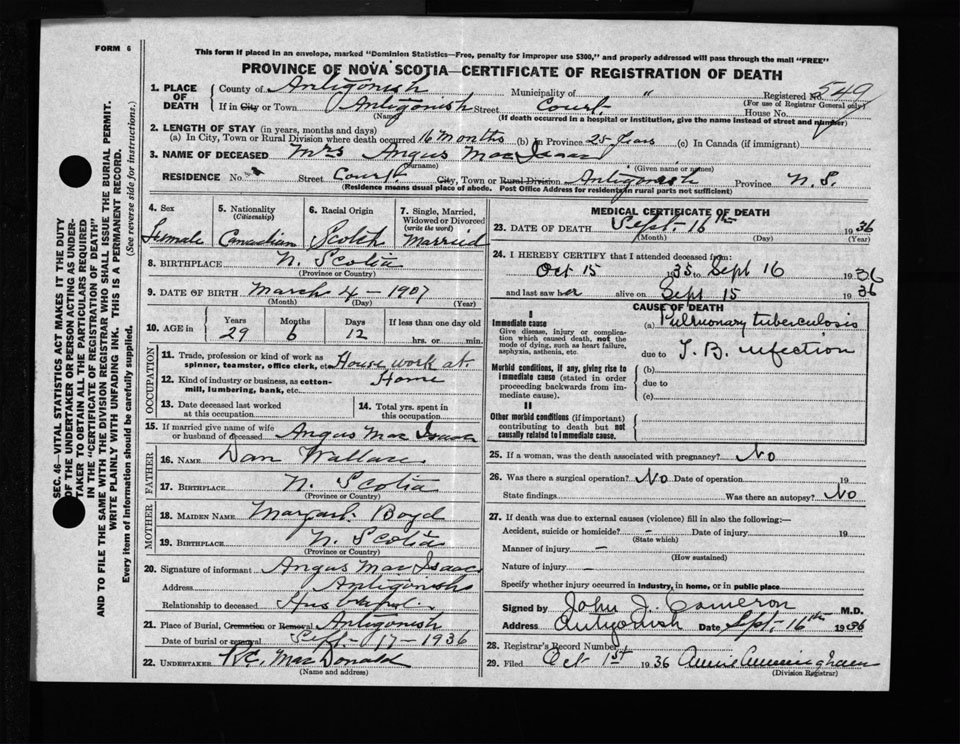 FORM 6
This form if placed in an envelope, marked "Dominion Statistics—Free, penalty for improper use $300," and properly addressed will pass through the mail "FREE"
PROVINCE OF NOVA SCOTIA—CERTIFICATE OF REGISTRATION OF DEATH
SEC. 46—VITAL STATISTICS ACT MAKES IT THE DUTY
OF THE UNDERTAKER OR PERSON ACTING AS UNDER-
TAKER TO OBTAIN ALL THE PARTICULARS REQUIRED
IN THE "CERTIFICATE OF REGISTRATION OF DEATH"
AND TO FILE THE SAME WITH THE DIVISION REGISTRAR WHO SHALL ISSUE THE BURIAL PERMIT.
WRITE PLAINLY WITH UNFADING INK. THIS IS A PERMANENT RECORD.
Every item of Information should be carefully supplied. (See reverse side for instructions.)
1. PLACE OF DEATH County of Antigonish Municipality of " Registered No. 549
(For use of Registrar General only)
If in City or Town Antigonish Street Court House No.
(Name) (If death occurred in a hospital or institution, give the name instead of street and number)
2. LENGTH OF STAY (in years, months and days)
(a) In City, Town or Rural Division where death occurred 16 months (b) In Province 25 years (c) In Canada (if immigrant)
3. NAME OF DECEASED Mrs Angus MacIsaac
(Surname) (Given name or names)
RESIDENCE No. Street Court City, Town or Rural Division Antigonish Province N. S.
(Residence means usual place of abode. Post Office Address for residents in rural parts not sufficient)
4. Sex 5. Nationality (Citizenship) 6. Racial Origin 7. Single, Married, Widowed or Divorced (write the word)
Female Canadian Scotch Married
8. BIRTHPLACE N. Scotia
(Province or Country)
9. DATE OF BIRTH March 4 - 1907
(Month) (Day) (Year)
10. AGE in Years Months Days If less than one day old
29 6 12 hrs. or min.
OCCUPATION
11. Trade, profession or kind of work as spinner, teamster, office clerk, etc. House work at
12. Kind of industry or business, as cotton-mill, lumbering, bank, etc. Home
13. Date deceased last worked at this occupation
14. Total yrs. spent in this occupation
15. If married give name of wife or husband of deceased Angus MacIsaac
FATHER
16. NAME Dan Wallace
17. BIRTHPLACE N. Scotia
(Province or Country)
MOTHER
18. MAIDEN NAME Margaret Boyd
19. BIRTHPLACE N. Scotia
(Province or Country)
20. Signature of informant Angus MacIsaac
Address Antigonish
Relationship to deceased Husband
21. Place of Burial, Cremation or Removal Antigonish
Date of burial or removal Sept. 17 - 1936
22. UNDERTAKER MacDonald
(Name and address)
MEDICAL CERTIFICATE OF DEATH
23. DATE OF DEATH Sept. 16th 1936
(Month) (Day) (Year)
24. I HEREBY CERTIFY that I attended deceased from:
Oct 15 1935 to Sept 16 1936
and last saw her alive on Sept 15 1936
CAUSE OF DEATH
I
Immediate cause
Give disease, injury or complication which caused death, not the mode of dying, such as heart failure, asphyxia, asthenia, etc.
(a) Pulmonary tuberculosis
due to T. B. infection
Morbid conditions, if any, giving rise to immediate cause (stated in order proceeding backwards from immediate cause).
(b)
due to
(c)
II
Other morbid conditions (if important) contributing to death but not causally related to immediate cause.
25. If a woman, was the death associated with pregnancy? No
26. Was there a surgical operation? No Date of operation 19
State findings Was there an autopsy? No
27. If death was due to external causes (violence) fill in also the following:—
Accident, suicide or homicide? - Date of injury 19
(State which)
Manner of injury -
(How sustained)
Nature of injury -
Specify whether injury occurred in industry, in home, or in public place
Signed by John J. Cameron M.D.
Address Antigonish Date Sept. 16th 1936
28. Registrar's Record Number
29. Filed Oct 1st 1936 Annie Cunningham
(Division Registrar)